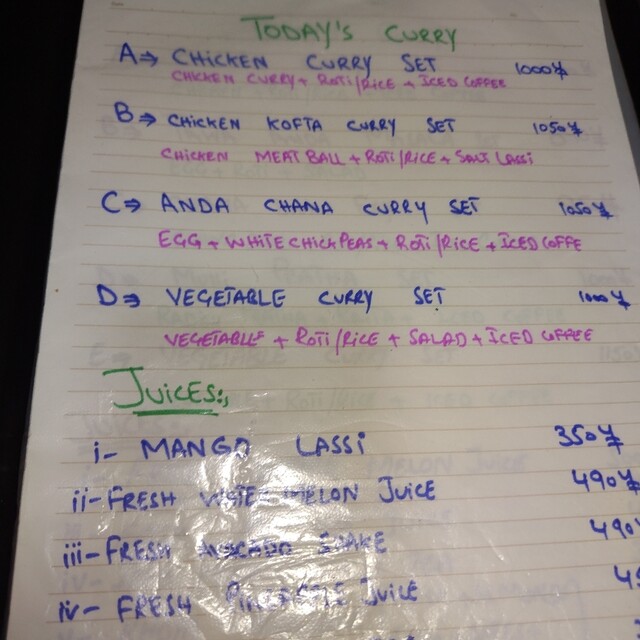 TODAY'S CURRY
A⇒ CHICKEN CURRY SET 1000¥
CHICKEN CURRY + ROTI/RICE + ICED COFFEE
B⇒ CHICKEN KOFTA CURRY SET 1050¥
CHICKEN MEAT BALL + ROTI/RICE + SALT LASSI
C⇒ ANDA CHANA CURRY SET 1050¥
EGG + WHITE CHICKPEAS + ROTI/RICE + ICED COFFE
D⇒ VEGETABLE CURRY SET 1000¥
VEGETABLE + ROTI/RICE + SALAD + ICED COFFEE
JUICES:,
i- MANGO LASSI 350¥
ii- FRESH WATER MELON JUICE 490¥
iii- FRESH AVOCADO SHAKE 490
iv- FRESH PINEAPPLE JUICE